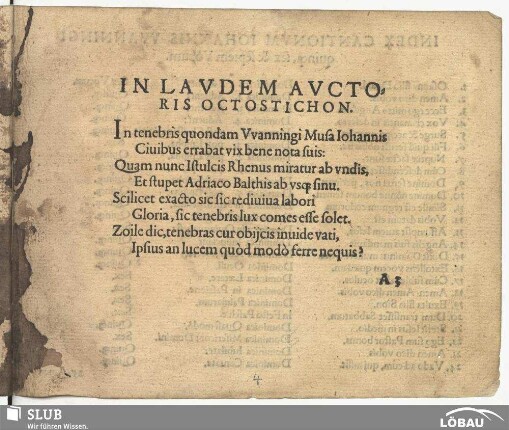 IN LAVDEM AVCTO-
RIS OCTOSTICHON.
In tenebris quondam Vvanningi Musa Iohannis
Ciuibus errabat vix bene nota suis:
Quam nunc Istulcis Rhenus miratur ab vndis,
Et stupet Adriaco Balthis ab vsq; sinu.
Scilicet exacto sic sic rediuiua labori
Gloria, sic tenebris lux comes esse solet.
Zoile dic, tenebras cur obijcis inuide vati,
Ipsius an lucem quòd modò ferre nequis?
A 3
4
SLUB
Wir führen Wissen.
LÖBAU